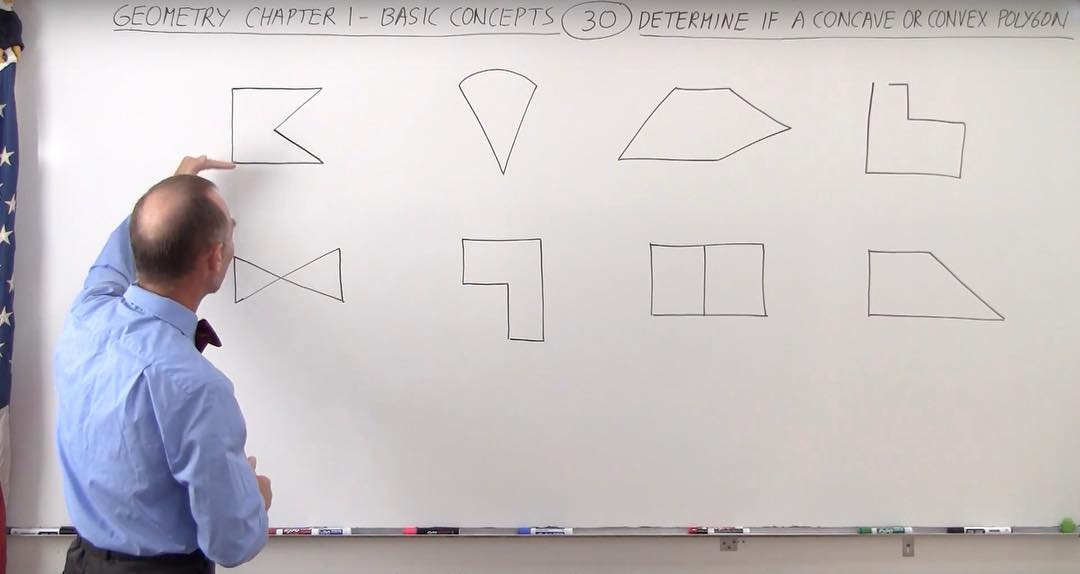 GEOMETRY CHAPTER 1 - BASIC CONCEPTS 30 DETERMINE IF A CONCAVE OR CONVEX POLYGON
EXPO